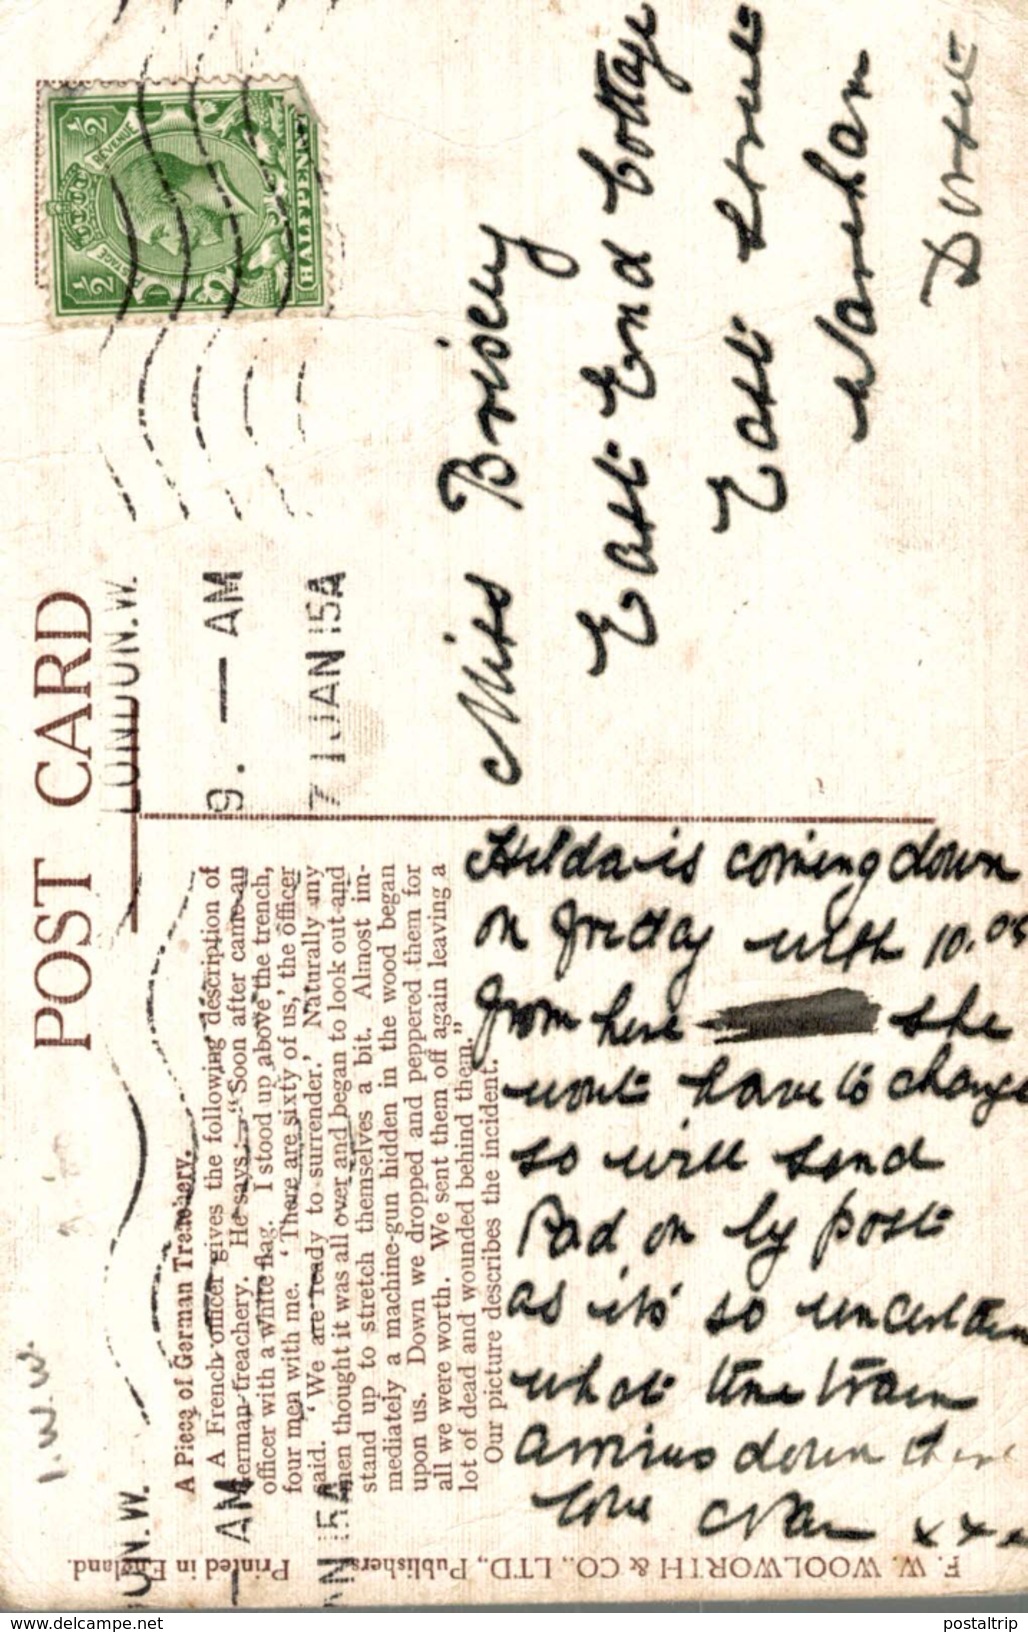 POST CARD
LONDON.W.
9. — AM
7 JAN 15A
½ ½
POSTAGE REVENUE
HALFPENNY
A Piece of German Treachery.
A French officer gives the following description of
German treachery. He says:—"Soon after came an
officer with a white flag. I stood up above the trench,
four men with me. 'There are sixty of us,' the officer
said. 'We are ready to surrender.' Naturally my
men thought it was all over and began to look out and
stand up to stretch themselves a bit. Almost im-
mediately a machine-gun hidden in the wood began
upon us. Down we dropped and peppered them for
all we were worth. We sent them off again leaving a
lot of dead and wounded behind them."
Our picture describes the incident.
Hilda is coming down
on Friday with 10.05
from here she
wont have to change
so will send
Pad on by post
as its so uncertain
what time train
arrives down there
love Nan xxx
Miss Brisley
East End Cottage
East Street
Wareham
Dorset
F. W. WOOLWORTH & CO., LTD., Publishers.
Printed in England.
I.W.W.
ON.W.
— AM
AN 15A
www.delcampe.net
postaltrip